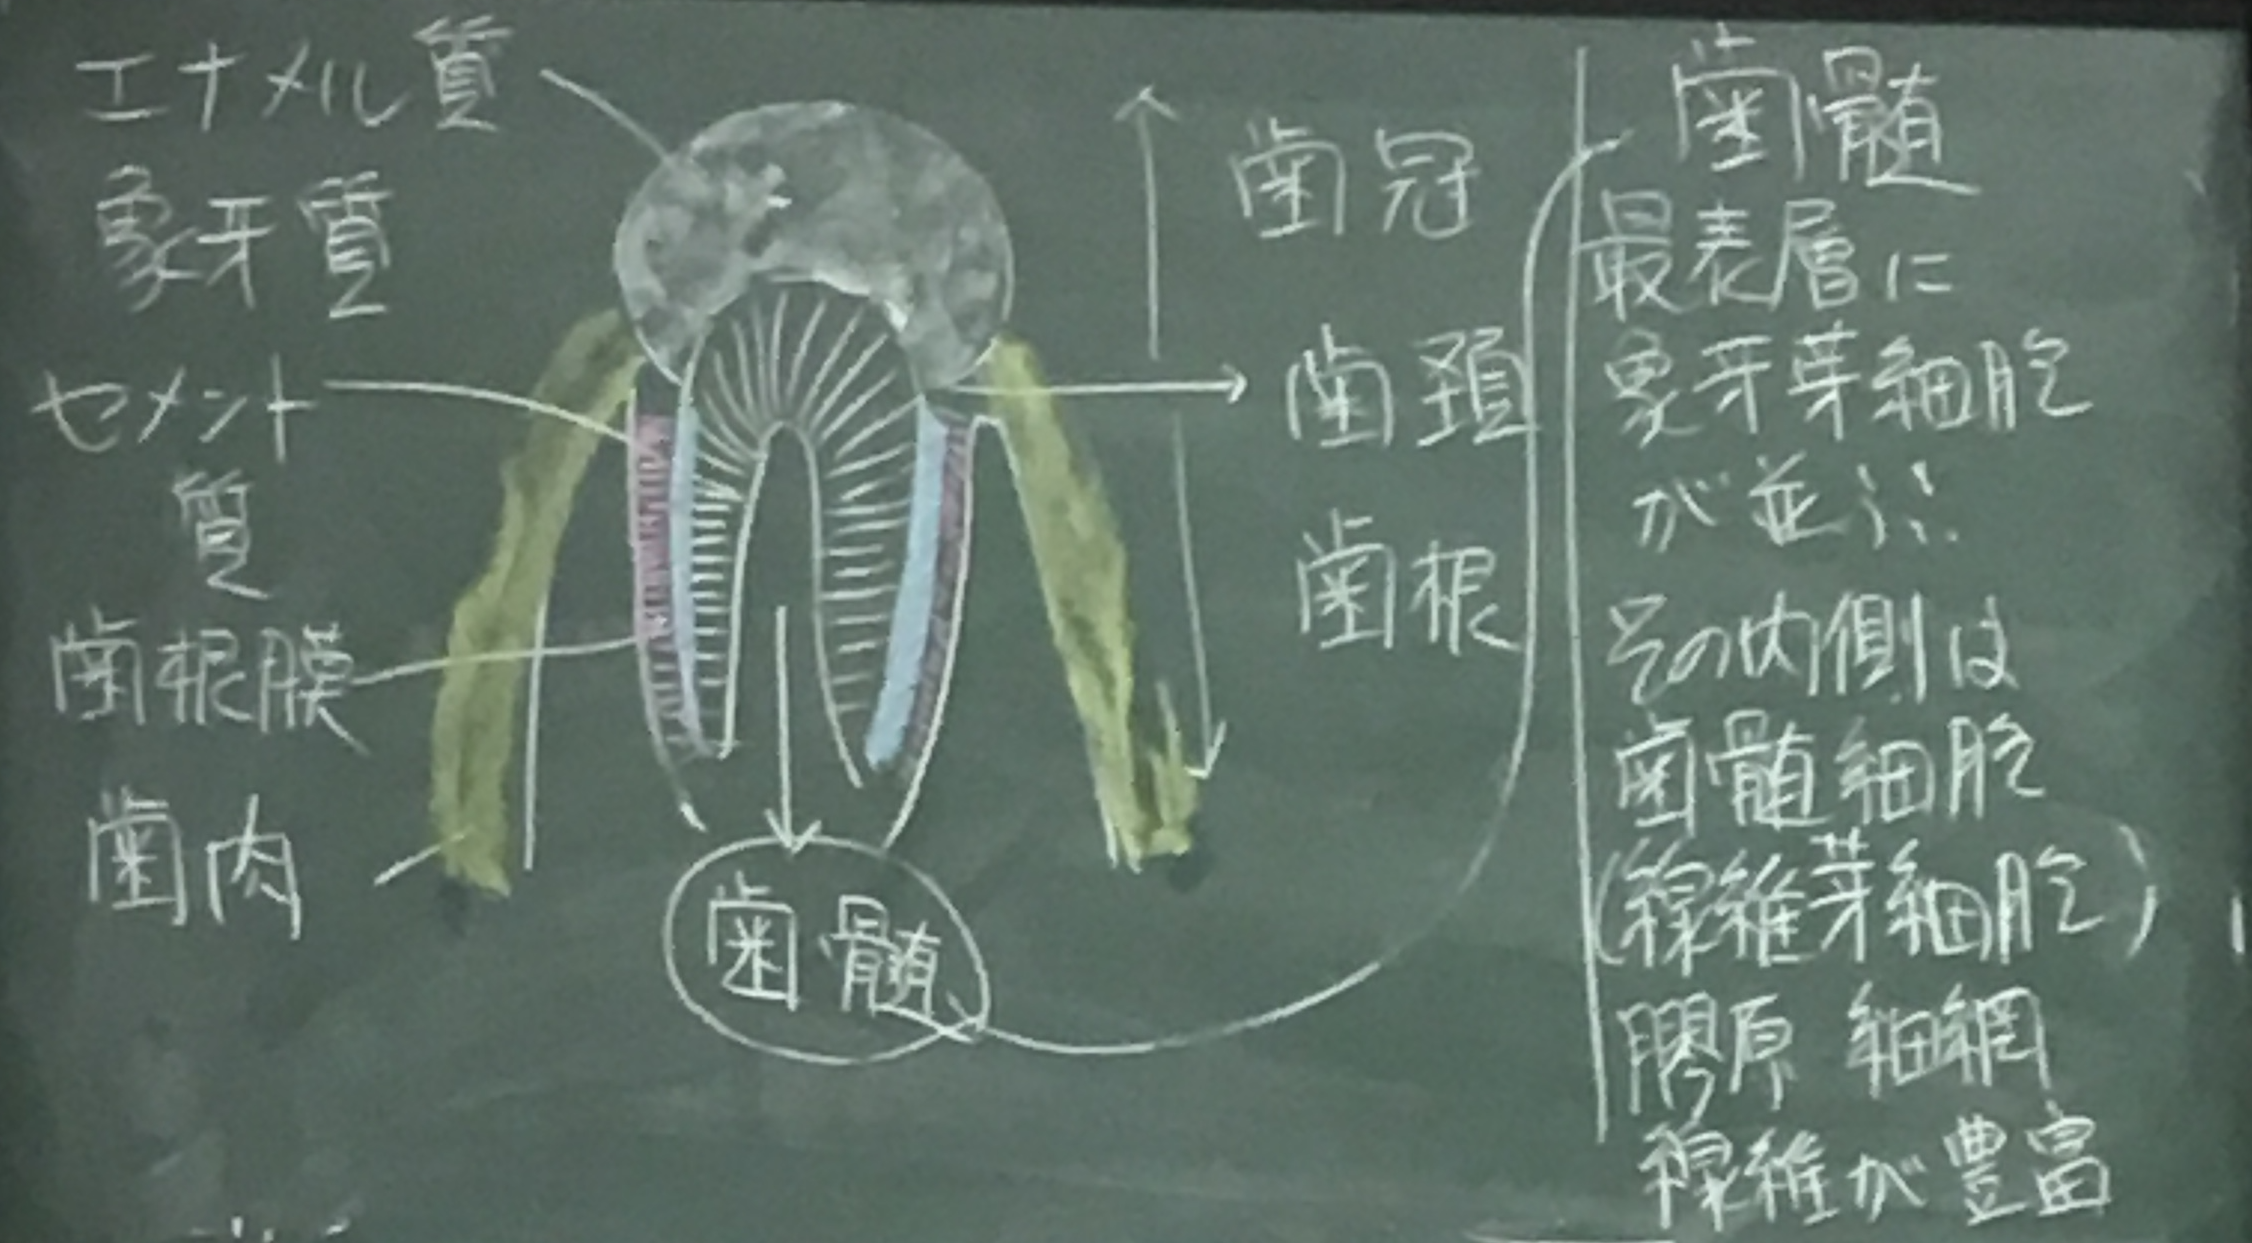 エナメル質
象牙質
セメント
質
歯根膜
歯肉
歯冠
歯頚
歯根
歯髄
歯髄
最表層に
象牙芽細胞
が並ぶ
その内側は
歯髄細胞
(線維芽細胞)
膠原 細網
線維が豊富